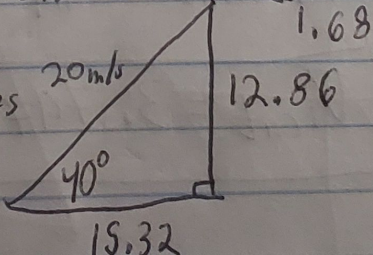 1.68
20m/s
12.86
s
40°
15.32